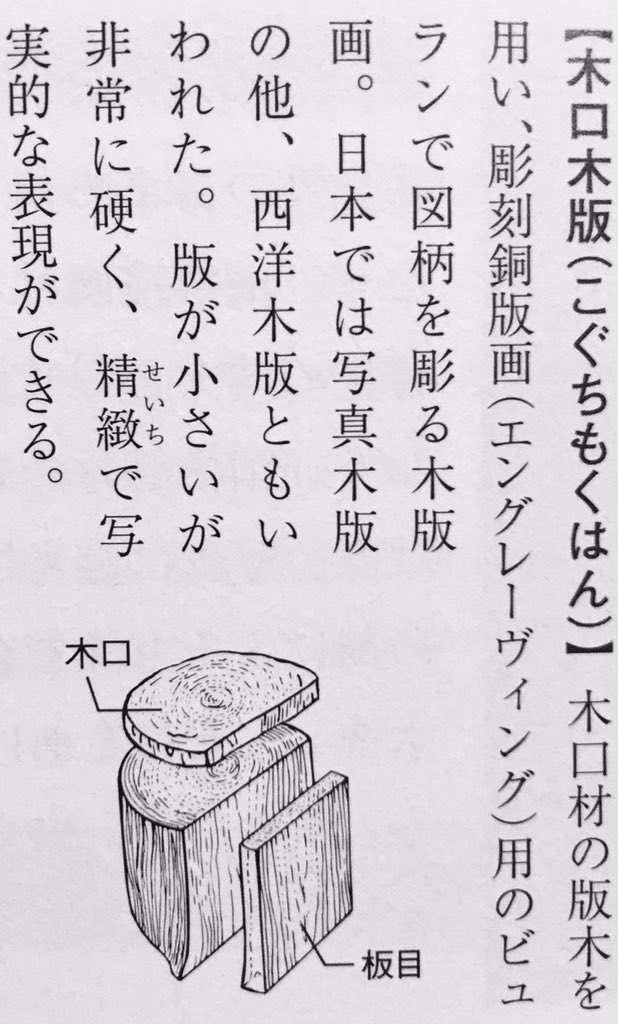 【木口木版(こぐちもくはん)】 木口材の版木を
用い、彫刻銅版画(エングレーヴィング)用のビュ
ランで図柄を彫る木版
画。日本では写真木版
の他、西洋木版ともい
われた。版が小さいが
非常に硬く、精緻で写
せいち
実的な表現ができる。
木口
板目